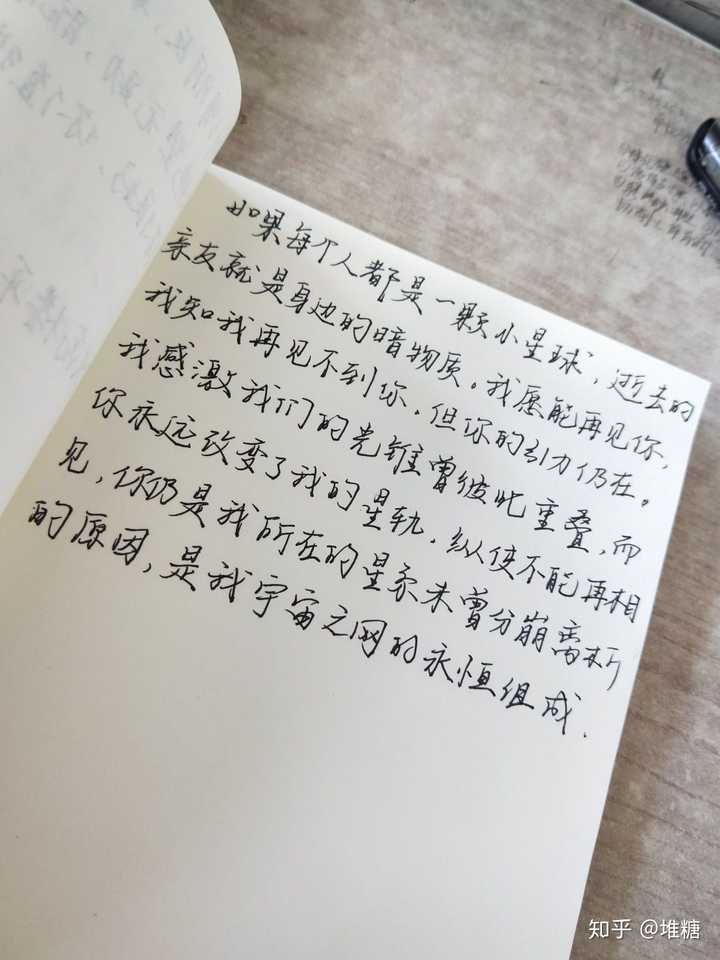 如果每个人都是一颗小星球，逝去的
亲友就是身边的暗物质。我愿能再见你，
我知我再见不到你。但你的引力仍在。
我感激我们的光锥曾彼此重叠，而
你永远改变了我的星轨。纵使不能再相
见，你仍是我所在的星系未曾分崩离析
的原因，是我宇宙之网的永恒组成.
知乎 @堆糖